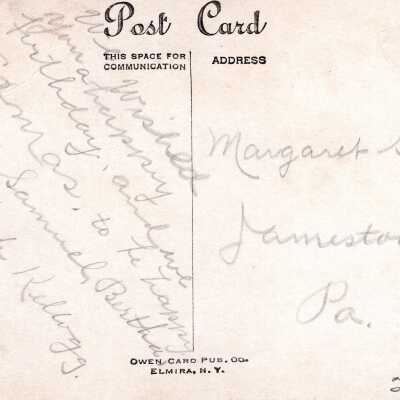 Post Card
THIS SPACE FOR
COMMUNICATION
ADDRESS
We wished
you a happy
birthday, and we
to be happy
Xmas.
Samuel, Bertha
Kellogg.
Margaret S
Jamesto
Pa.
OWEN CARD PUB. CO.
ELMIRA, N.Y.